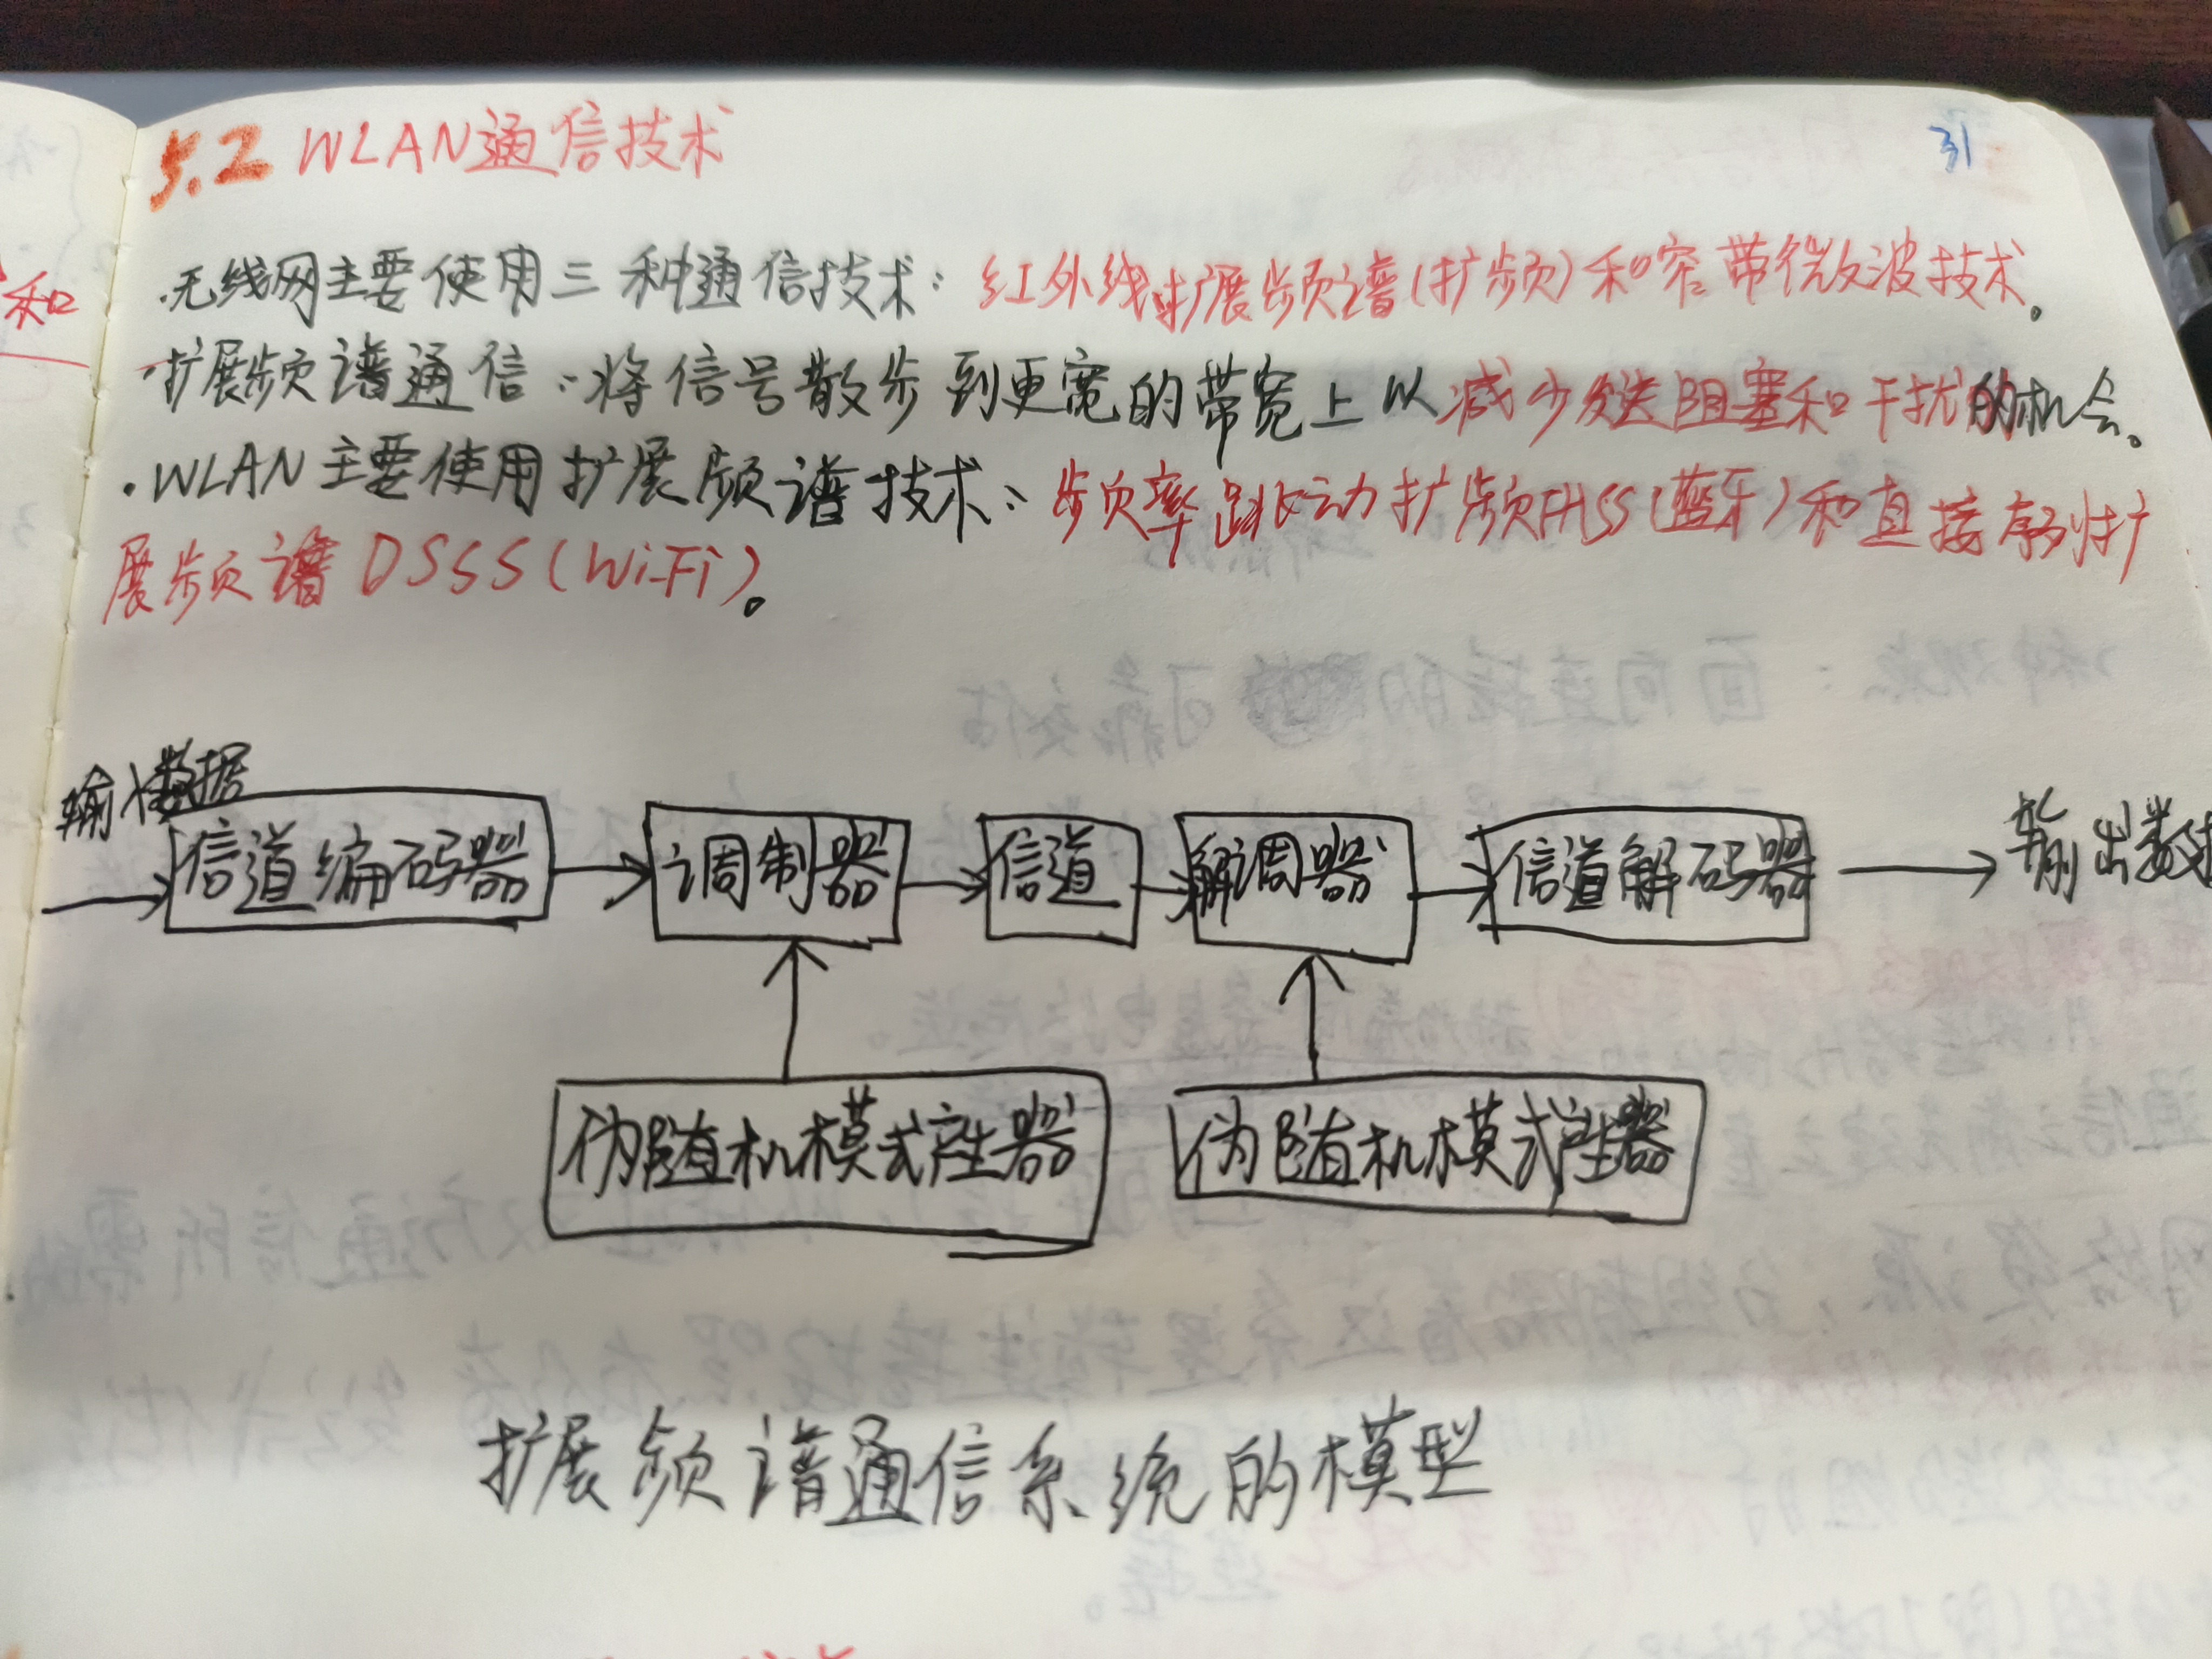 31
5.2 WLAN通信技术
·无线网主要使用三种通信技术：红外线、扩展频谱(扩频)和窄带微波技术。
·扩展频谱通信：将信号散步到更宽的带宽上以减少发送阻塞和干扰的机会。
·WLAN主要使用扩展频谱技术：频率跳动扩频FHSS(蓝牙)和直接序列扩
展频谱DSSS(Wi-Fi)。
和
输入数据
信道编码器
调制器
信道
解调器
信道解码器
输出数
伪随机模式产生器
伪随机模式产生器
扩展频谱通信系统的模型